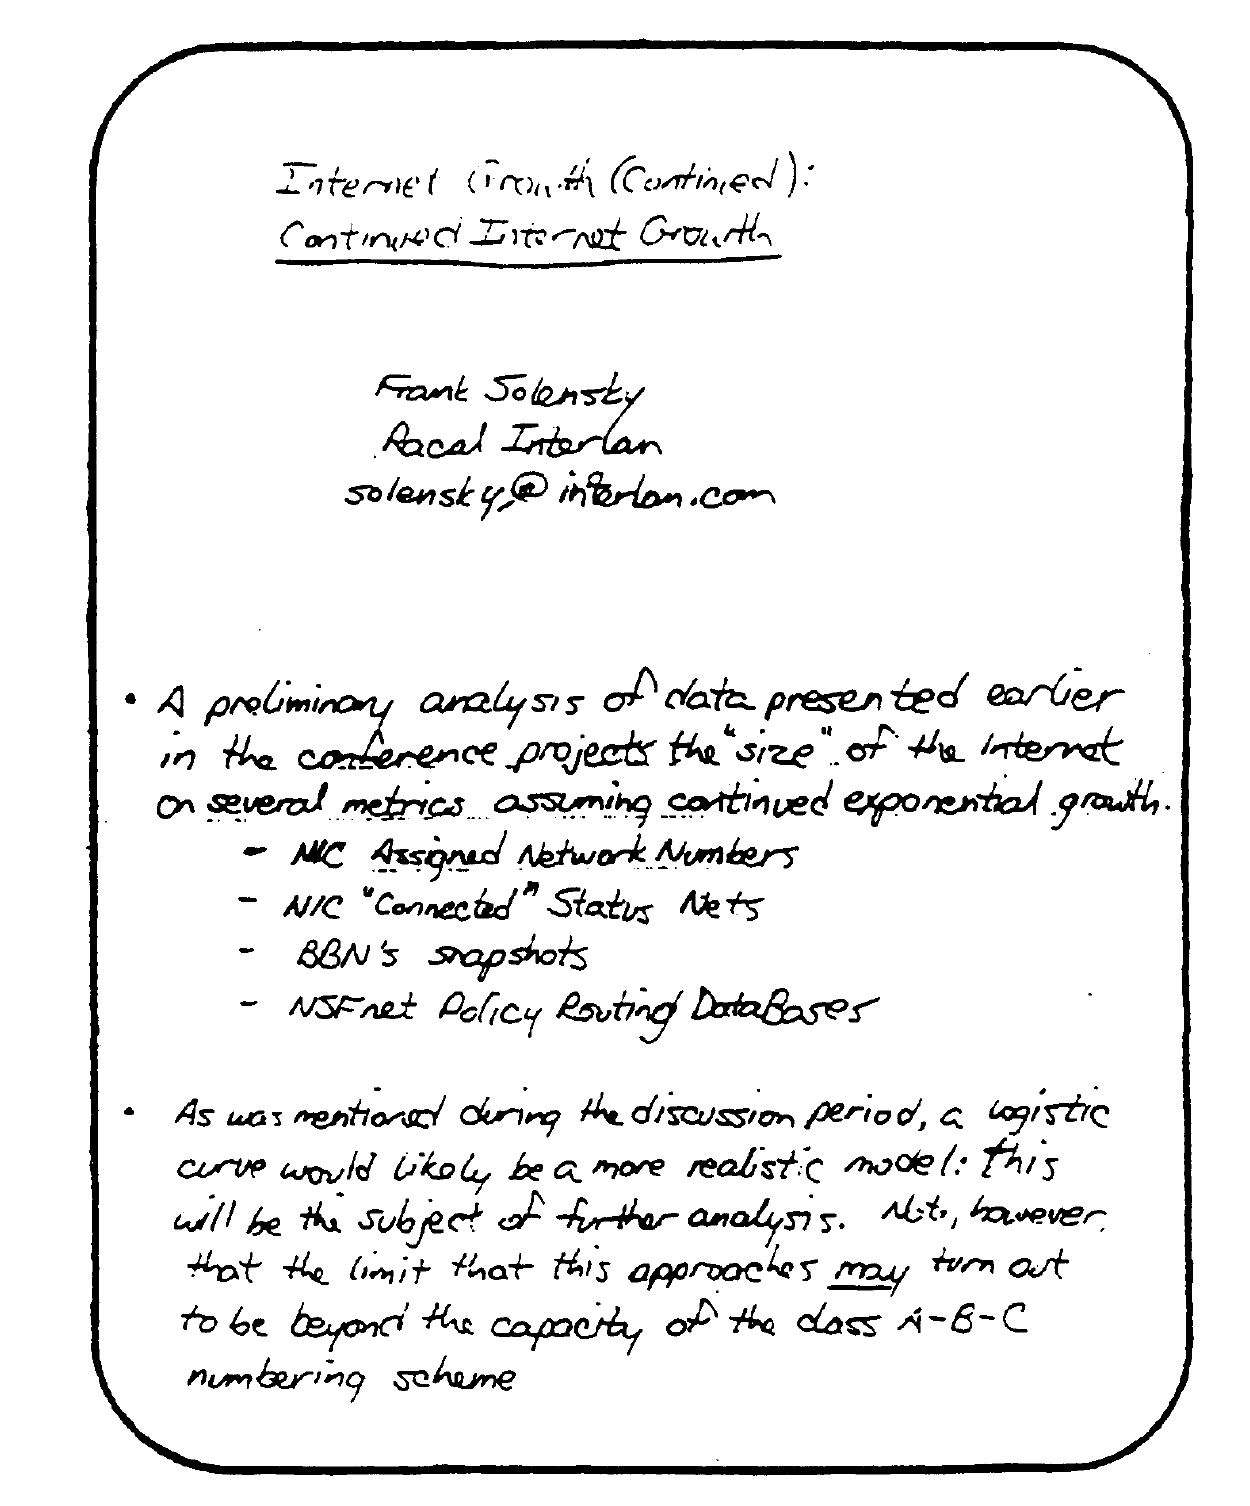 Internet Growth (Continued):
Continued Internet Growth
Frank Solensky
Racal Interlan
solensky@interlan.com
• A preliminary analysis of data presented earlier
in the conference projects the "size" of the Internet
on several metrics assuming continued exponential growth.
- NIC Assigned Network Numbers
- NIC "Connected" Status Nets
- BBN's snapshots
- NSFnet Policy Routing DataBases
• As was mentioned during the discussion period, a logistic
curve would likely be a more realistic model: this
will be the subject of further analysis. Note, however,
that the limit that this approaches may turn out
to be beyond the capacity of the class A-B-C
numbering scheme